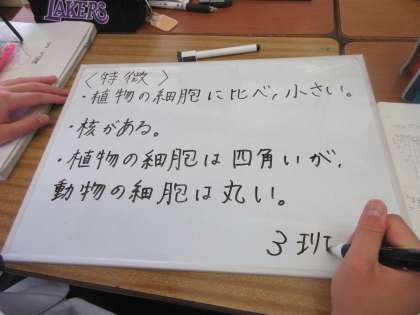 LAKERS
〈特徴〉
・植物の細胞に比べ,小さい。
・核がある。
・植物の細胞は四角いが,
動物の細胞は丸い。
3班